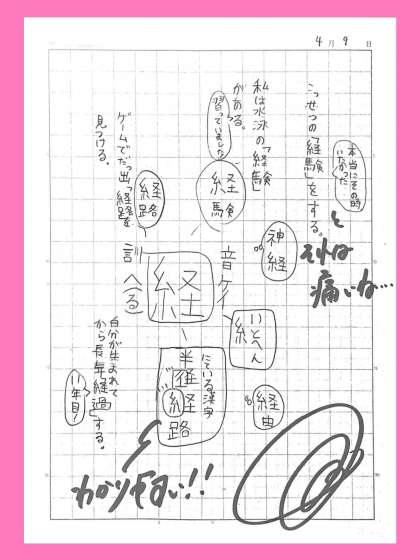 4月9日
こっせつの「経験」をする。
本当にその時
いたかった
それは
痛いね…
私は水泳の「経験」
がある。
習っていました
経験
神経
ゲームでだっ出「経路」を
見つける。
経路
経
音ケイ
訓へ(る)
いとへん
糸
にている漢字
半径
経路
経由
自分が生まれて
から長年経過する。
11年目!
わかり易い!!